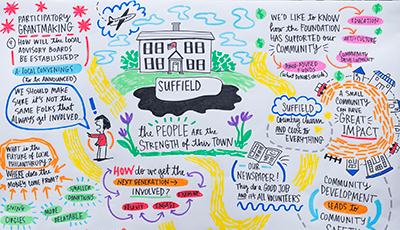 PARTICIPATORY
GRANTMAKING
HOW WILL THE LOCAL
ADVISORY BOARDS
BE ESTABLISHED?
LOCAL CONVENINGS
(to be ANNOUNCED)
WE SHOULD MAKE
SURE IT'S NOT THE
SAME FOLKS that
ALWAYS get INVOLVED...
WHAT is the
FUTURE of LOCAL
PHILANTHROPY?
WHERE does the
MONEY COME FROM?
GIVING
CIRCLES
SMALLER
DONATIONS
MORE
RELATABLE
SUFFIELD
the PEOPLE are the
STRENGTH of this TOWN
HOW do we get the
NEXT GENERATION
INVOLVED?
ENGAGE
OUR
NEWSPAPER!
They do a GOOD JOB
and it's ALL VOLUNTEERS
WE'D LIKE to KNOW
how the FOUNDATION
HAS SUPPORTED our
COMMUNITY
EDUCATION
COMMUNITY
DEVELOPMENT
FUNDS
SUFFIELD
Country charm
and CLOSE to
EVERYTHING
A SMALL
COMMUNITY
CAN HAVE
GREAT
IMPACT
COMMUNITY
DEVELOPMENT
LEADS to
COMMUNITY